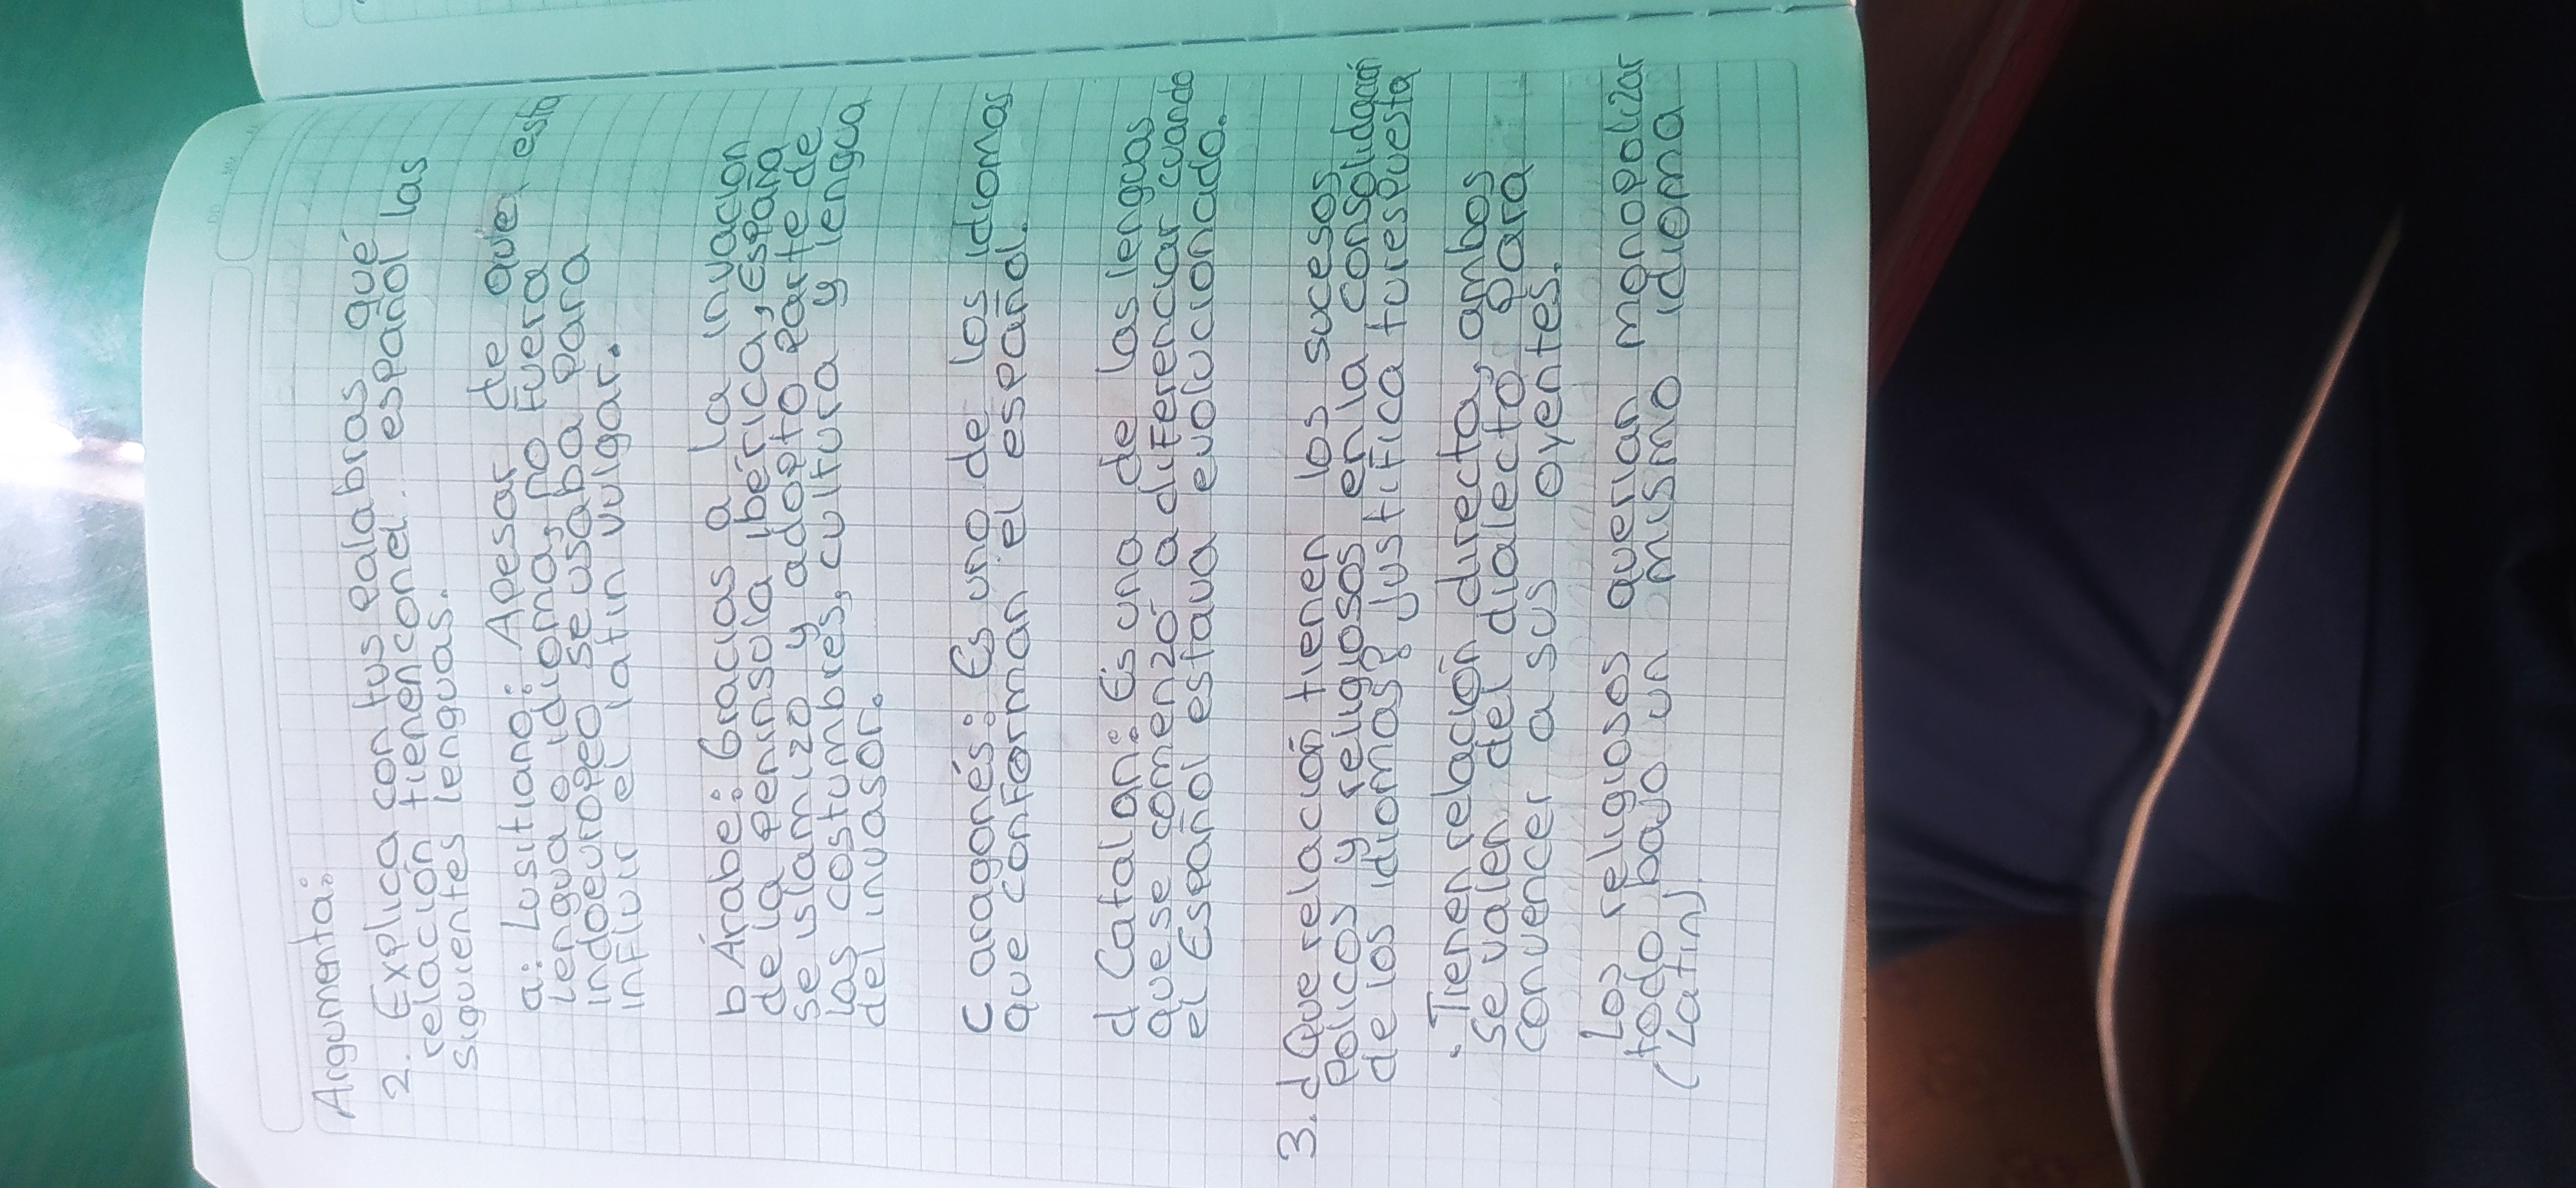 Argumenta:
2. Explica con tus palabras qué
relación tienen con el español las
siguientes lenguas.
a: Lusitiano: Apesar de que esta
lengua o idioma, no fuera
indoeuropeo se usaba para
influir el latin vulgar.
b Árabe: Gracias a la invacion
de la peninsula ibérica, España
se islamizo y adopto parte de
las costumbres, cultura y lengua
del invasor.
C aragonés: Es uno de los idiomas
que conforman el español.
d Catalan: Es una de las lenguas
que se comenzó a diferenciar cuando
el Español estava evolucionado.
3. d Que relación tienen los sucesos
policos y religiosos en la consolidación
de los idiomas? Justifica tu respuesta
• Tienen relación directa, ambos
se valen del dialecto para
convencer a sus oyentes.
Los religiosos querian monopolizar
todo bajo un mismo idioma
(Latin)